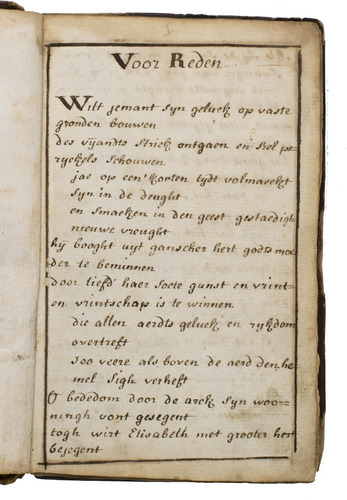 1
Voor Reden
Wilt jemant syn geluck op vaste
gronden bouwen
des vyandts strick ontgaen en siel pe-
ryckels schouwen
jae op een' korten tydt volmaeckt
syn in de deught
en smaeken in den geest gestaedigh
nieuwe vreught
hy booght uyt ganscher hert godts moe
der te beminnen
door liefd' haer soete gunst en vrint
en vrintschap is te winnen
die allen aerdts geluck en rykdom
overtreft
soo veere als boven de aerd den he
mel sigh verheft
O bededom door de arck syn woo-
ningh vont gesegent
togh wirt Elisabeth met grooter heyl
bejegent